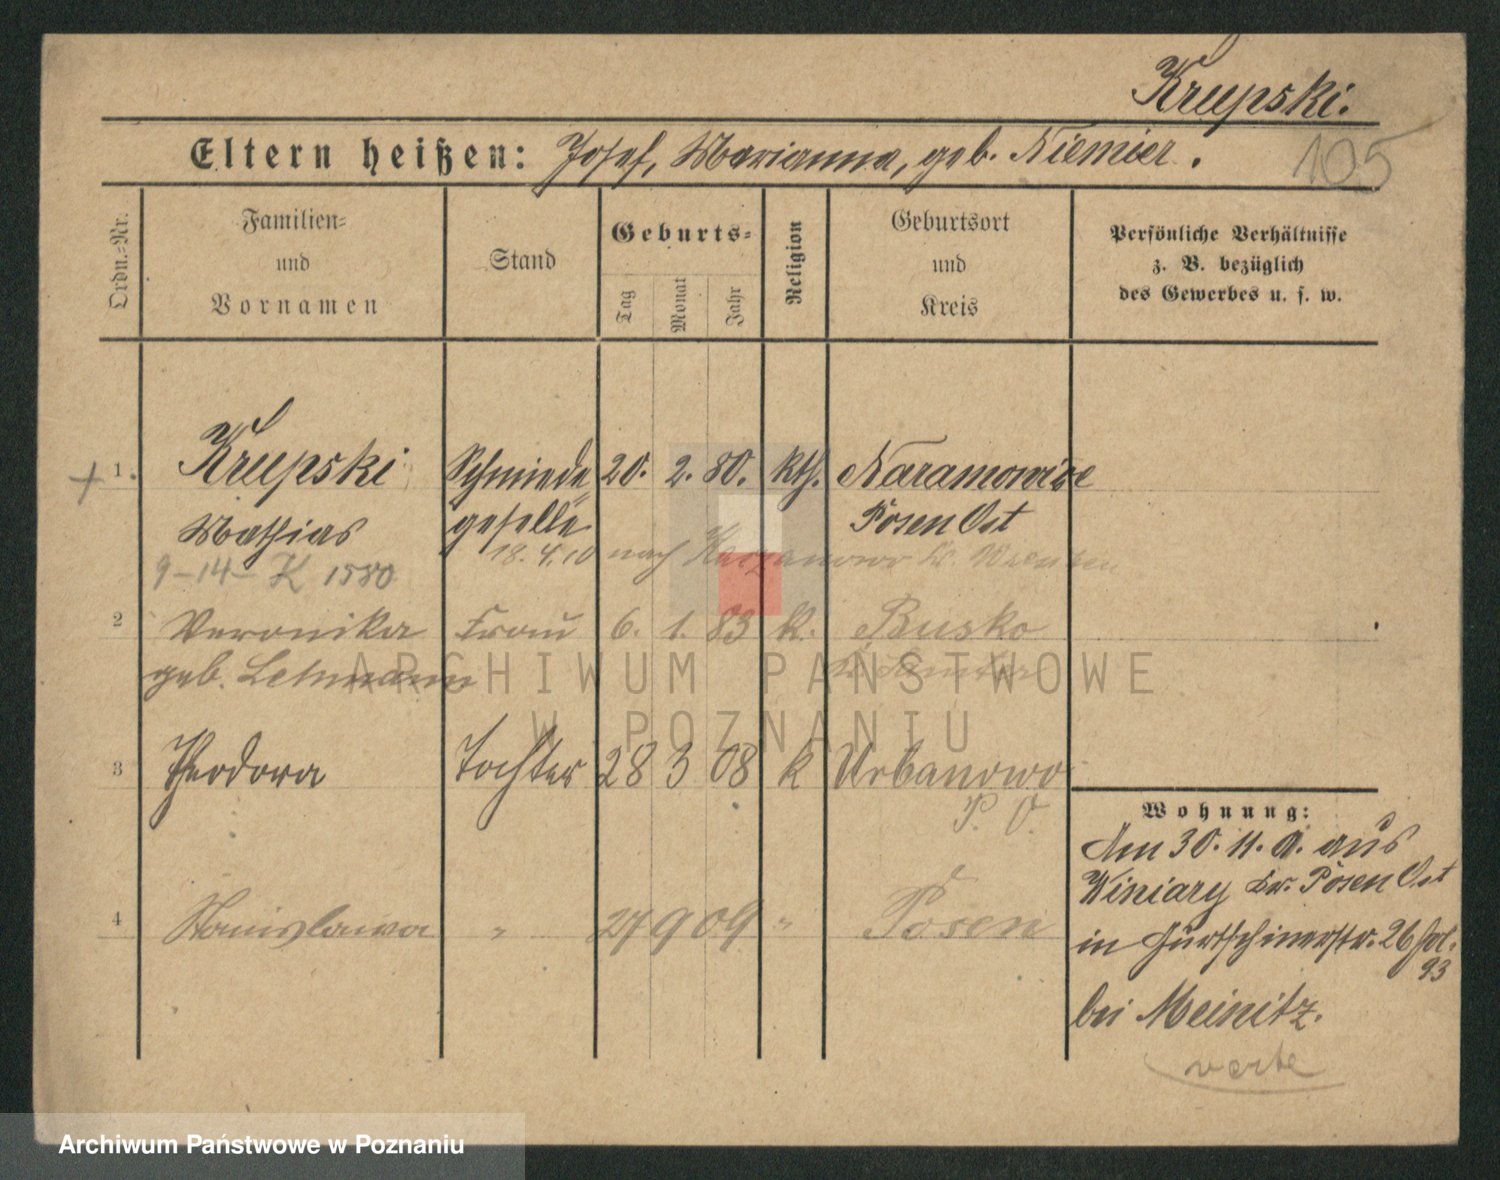 Krupski.
Eltern heißen: Josef, Marianna, geb. Niemier.
105
Ordn.-Nr.
Familien-
und
Vornamen
Stand
Geburts-
Tag
Monat
Jahr
Religion
Geburtsort
und
Kreis
Persönliche Verhältnisse
z. B. bezüglich
des Gewerbes u. s. w.
+ 1. Krupski Schmiede 20. 2. 80. kth. Naramowice
Mathias geselle Posen Ost
18.4.10 nach
9-14- K 1580
2 Veronika Frau 6. 1. 83 k. Busko
geb.
ARCHIWUM PAŃSTWOWE
W POZNANIU
3 Theodora Tochter 28 3 08 k Urbanowo
P. O.
4 Stanislawa " 27 9 09 " Posen
Wohnung:
Am 30. 11. 0. aus
Winiary Kr. Posen Ost
in Gurtschinerstr. 26
93
bei Meinitz.
verte
Archiwum Państwowe w Poznaniu